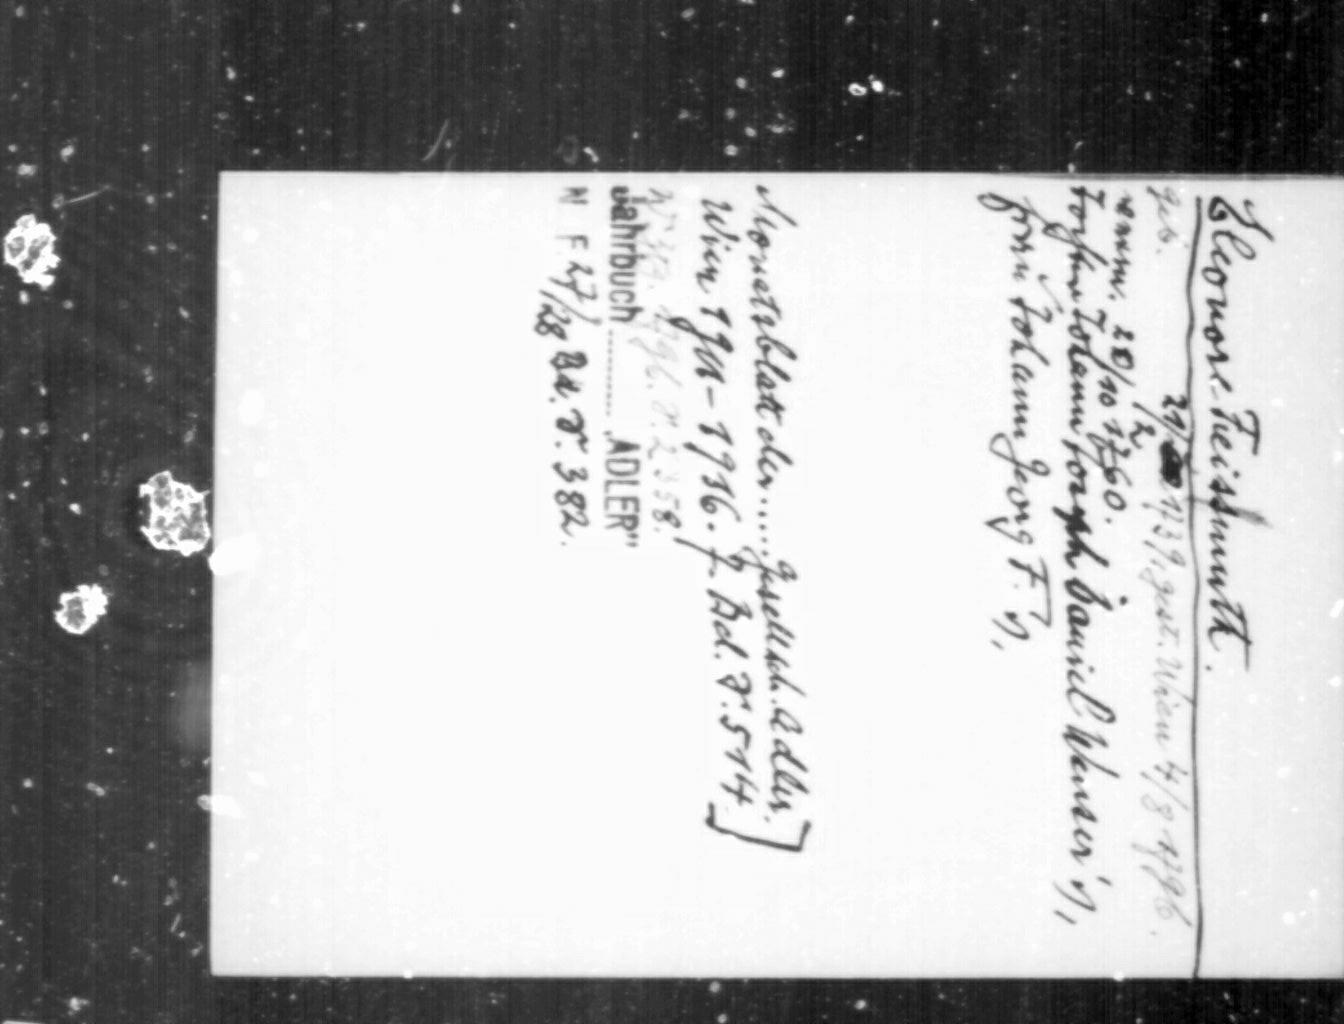 Eleonore Feissmuth.
geb. 21/2 1739, gest. Wien 4/8 1796.
verm. 20/10 1760.
Johann Joseph Daniel
Johann Georg F.
Monatsblatt der..... Gesellsch. Adler.
Wien 19 -1936. Bd. S. 514]
1796. S. 2358.
Jahrbuch .......... „ADLER"
N F 27/28 Bd. S. 382.